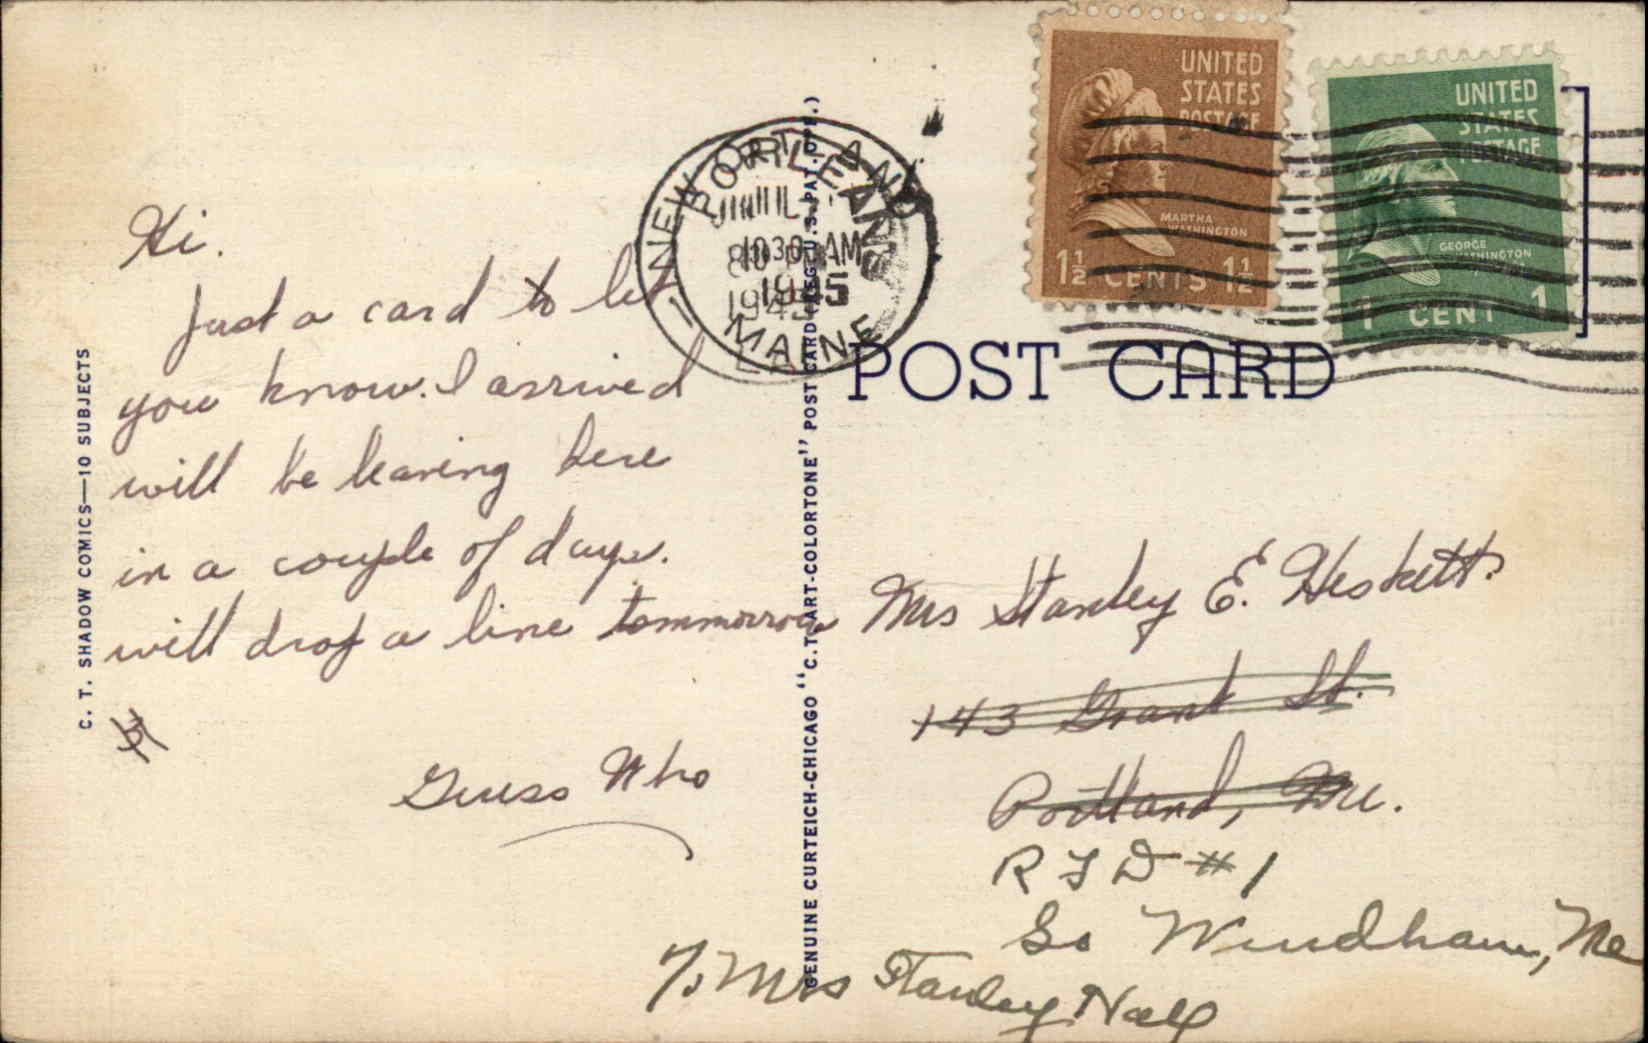 Hi.
Just a card to let
you know. I arrived
will be leaving here
in a couple of days.
will drop a line tommorrow
Guess Who
C. T. SHADOW COMICS—10 SUBJECTS
GENUINE CURTEICH-CHICAGO "C.T. ART-COLORTONE" POST CARD (REG. U.S. PAT. OFF.)
NEW ORLEANS
LA
PORTLAND
MAINE
10 30 AM
1945
UNITED
STATES
POSTAGE
MARTHA
WASHINGTON
1½ CENTS 1½
UNITED
STATES
POSTAGE
GEORGE
WASHINGTON
1 CENT 1
POST CARD
Mrs Stanley E. Heskett.
143 Grant St.
Portland, Me.
R F D #1
So Windham, Me
% Mrs Stanley Hall